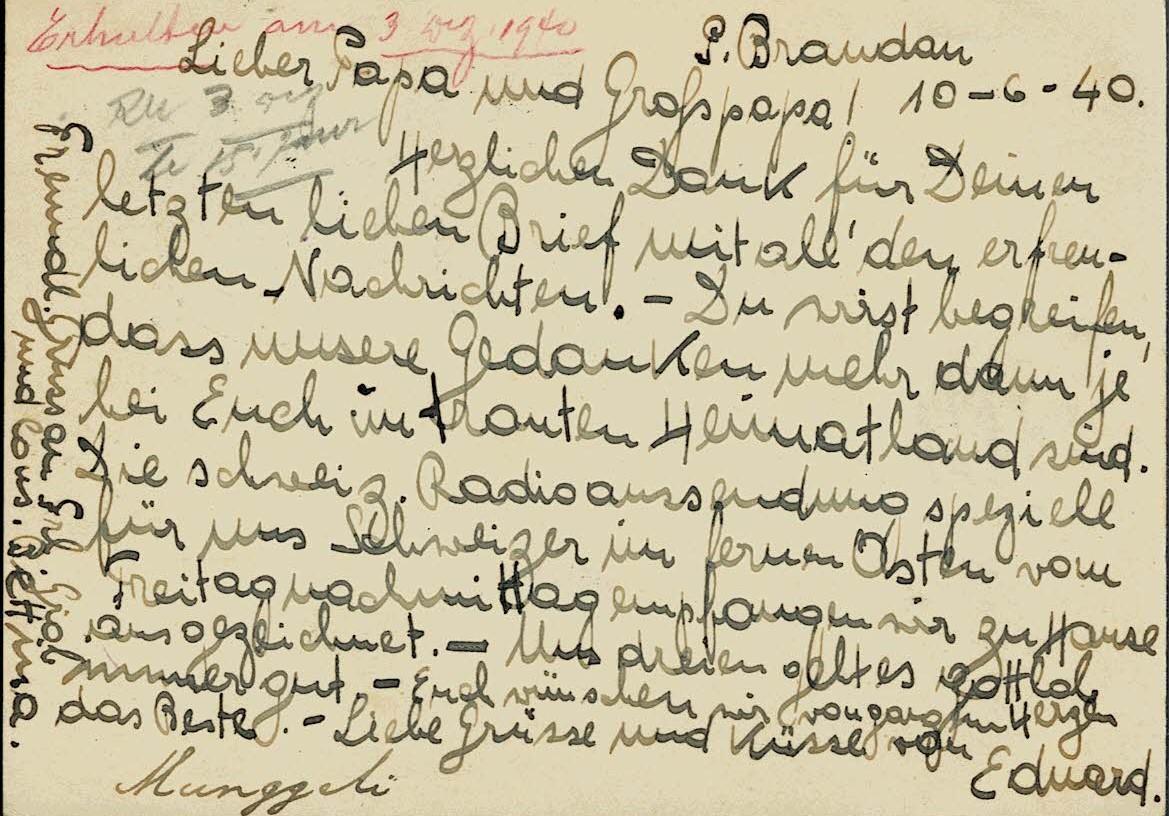 Erhalten am 3 Dez. 1940
P. Brandan
10-6-40.
Lieber Papa und Grosspapa!
Re 3 Dez
Te 15. Januar
Herzlichen Dank für Deinen
letzten lieben Brief mit all' den erfreu-
lichen Nachrichten. - Du wirst begreifen,
dass unsere Gedanken mehr dann je
bei Euch im trauten Heimatland sind.
Die schweiz. Radioaussendung speziell
für uns Schweizer im fernen Osten vom
Freitagnachmittag empfangen wir zu Hause
ausgezeichnet. - Uns dreien geht es gottlob
immer gut. - Euch wünschen wir von ganzem Herzen
das Beste. - Liebe Grüsse und Küsse von
Eduard.
Munggeli
Freundl. Grüsse an Frl.
und Cons.